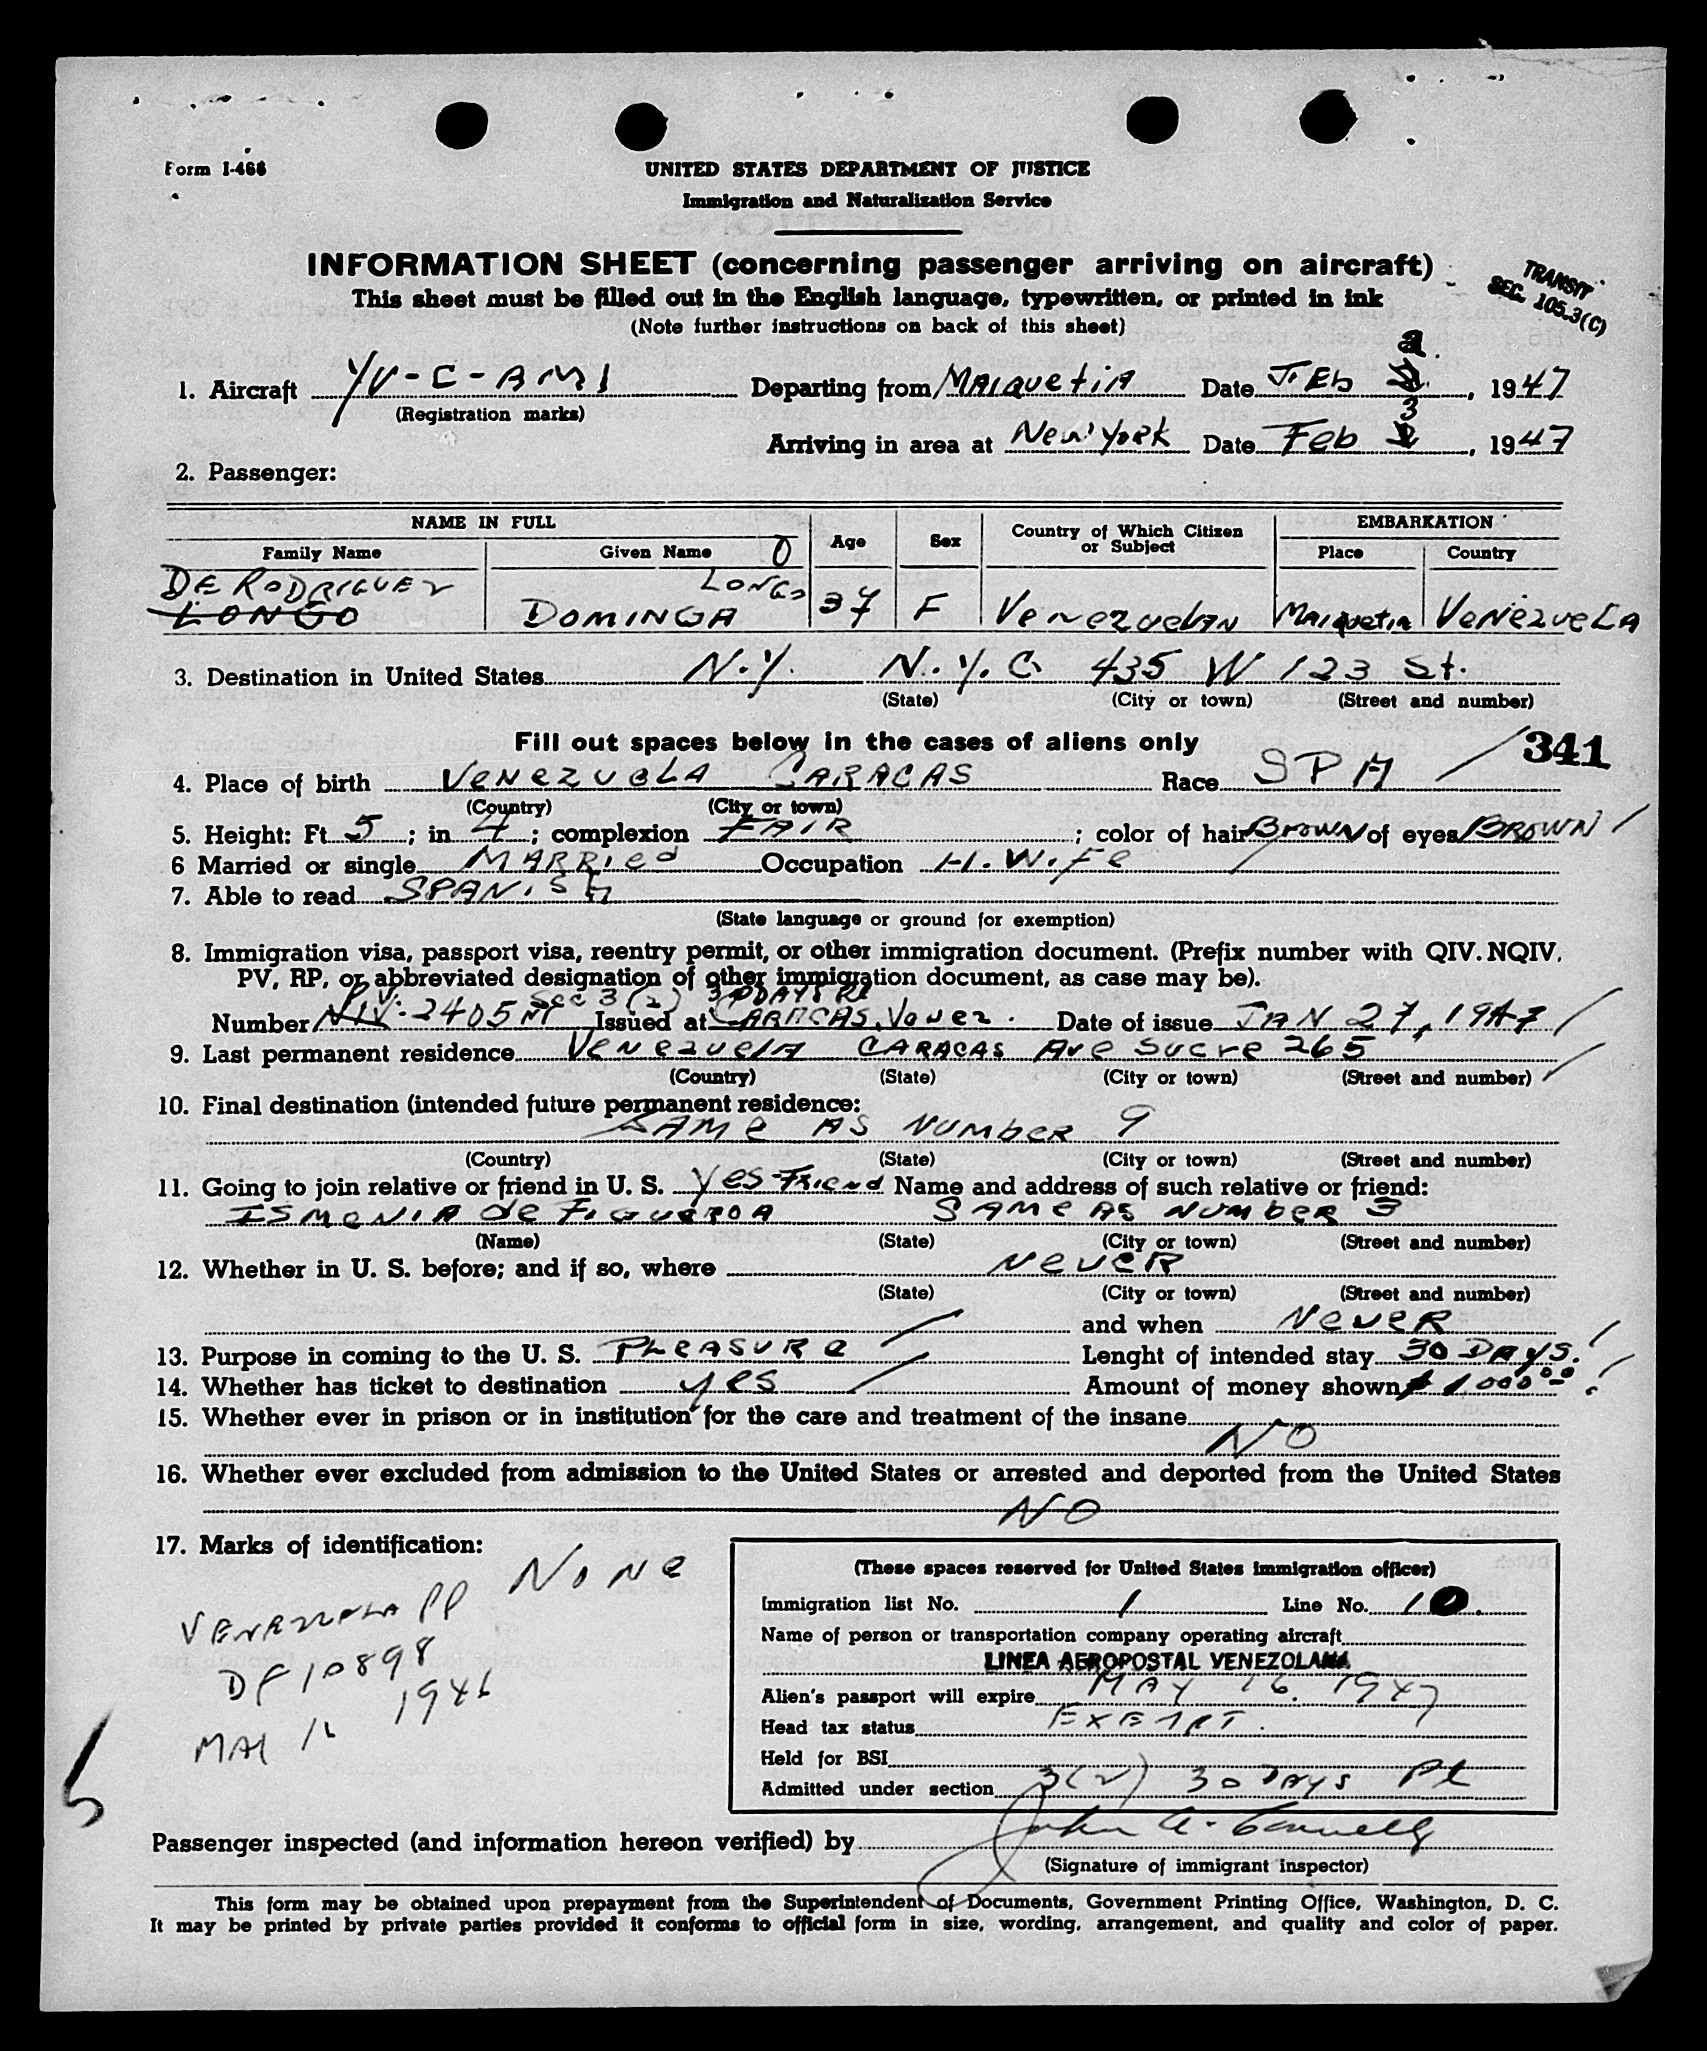 Form I-466
UNITED STATES DEPARTMENT OF JUSTICE
Immigration and Naturalization Service
INFORMATION SHEET (concerning passenger arriving on aircraft)
TRANSIT
SEC. 105.3(C)
This sheet must be filled out in the English language, typewritten, or printed in ink
(Note further instructions on back of this sheet)
1. Aircraft YV-C-AMI Departing from MAIQUETIA Date FEb 2, 1947
(Registration marks)
Arriving in area at New York Date Feb 3, 1947
2. Passenger:
NAME IN FULL Age Sex Country of Which Citizen or Subject EMBARKATION
Family Name Given Name Place Country
DE RODRIGUEZ LONGO
LONGO DOMINGA 37 F VenezuelAN MAIquetia VeNezueLA
3. Destination in United States N.Y. N.Y.C. 435 W 123 St.
(State) (City or town) (Street and number)
Fill out spaces below in the cases of aliens only 341
4. Place of birth VeNezueLA CARACAS Race SPA
(Country) (City or town)
5. Height: Ft. 5; in 4; complexion FAIR; color of hair BROWN of eyes BROWN
6 Married or single MARRIed Occupation H.WiFe
7. Able to read SPANiSh
(State language or ground for exemption)
8. Immigration visa, passport visa, reentry permit, or other immigration document. (Prefix number with QIV. NQIV.
PV, RP, or abbreviated designation of other immigration document, as case may be).
PV Sec 3 (2) 30 DAYS Pl
Number NIV. 2405 Issued at CARACAS, Venez. Date of issue JAN 27, 1947
9. Last permanent residence VeNezuelA CARACAS Ave Sucre 265
(Country) (State) (City or town) (Street and number)
10. Final destination (intended future permanent residence:
SAMe AS NUMbeR 9
(Country) (State) (City or town) (Street and number)
11. Going to join relative or friend in U. S. Yes-Friend Name and address of such relative or friend:
ISMeNIA de FIGUeROA SAMe AS NUMbeR 3
(Name) (State) (City or town) (Street and number)
12. Whether in U. S. before; and if so, where NeveR
(State) (City or town) (Street and number)
and when NeveR
13. Purpose in coming to the U. S. PLeASURe Lenght of intended stay 30 DAyS.
14. Whether has ticket to destination yes Amount of money shown $ 1,000.00
15. Whether ever in prison or in institution for the care and treatment of the insane
NO
16. Whether ever excluded from admission to the United States or arrested and deported from the United States
NO
17. Marks of identification:
NoNe
VENEZUELA PP
DF 10898
MAY 16 1946
(These spaces reserved for United States immigration officer)
Immigration list No. 1 Line No. 10.
Name of person or transportation company operating aircraft
LINEA AEROPOSTAL VENEZOLANA
Alien's passport will expire MAY 16. 1947
Head tax status EXEMPT.
Held for BSI
Admitted under section 3(2) 30 DAYS Pl
Passenger inspected (and information hereon verified) by John A. Connelly
(Signature of immigrant inspector)
This form may be obtained upon prepayment from the Superintendent of Documents, Government Printing Office, Washington, D. C.
It may be printed by private parties provided it conforms to official form in size, wording, arrangement, and quality and color of paper.